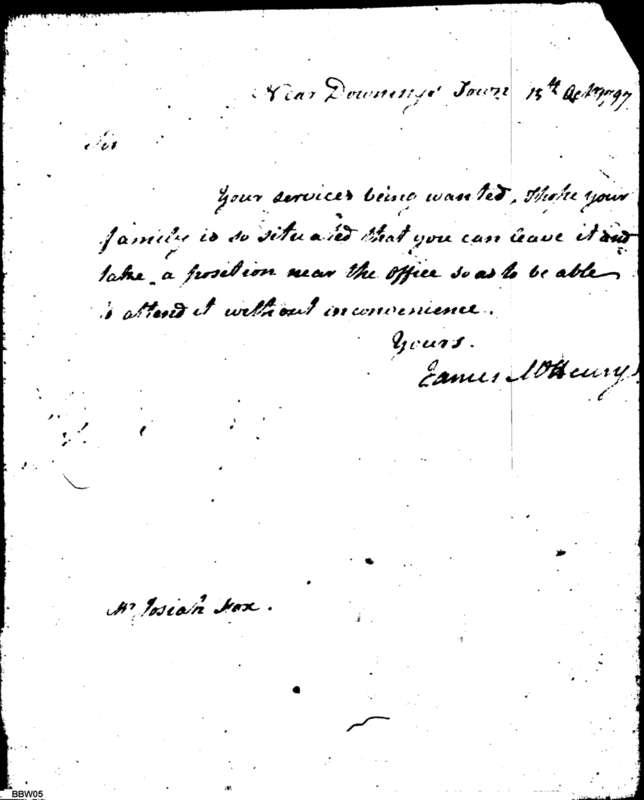 Near Downings Town 15th Octr. 97
Sir
Your services being wanted, I hope your
family is so situated that you can leave it and
take a position near the office so as to be able
to attend it without inconvenience.
Yours.
James McHenry
Mr Josiah Fox.
BBW05